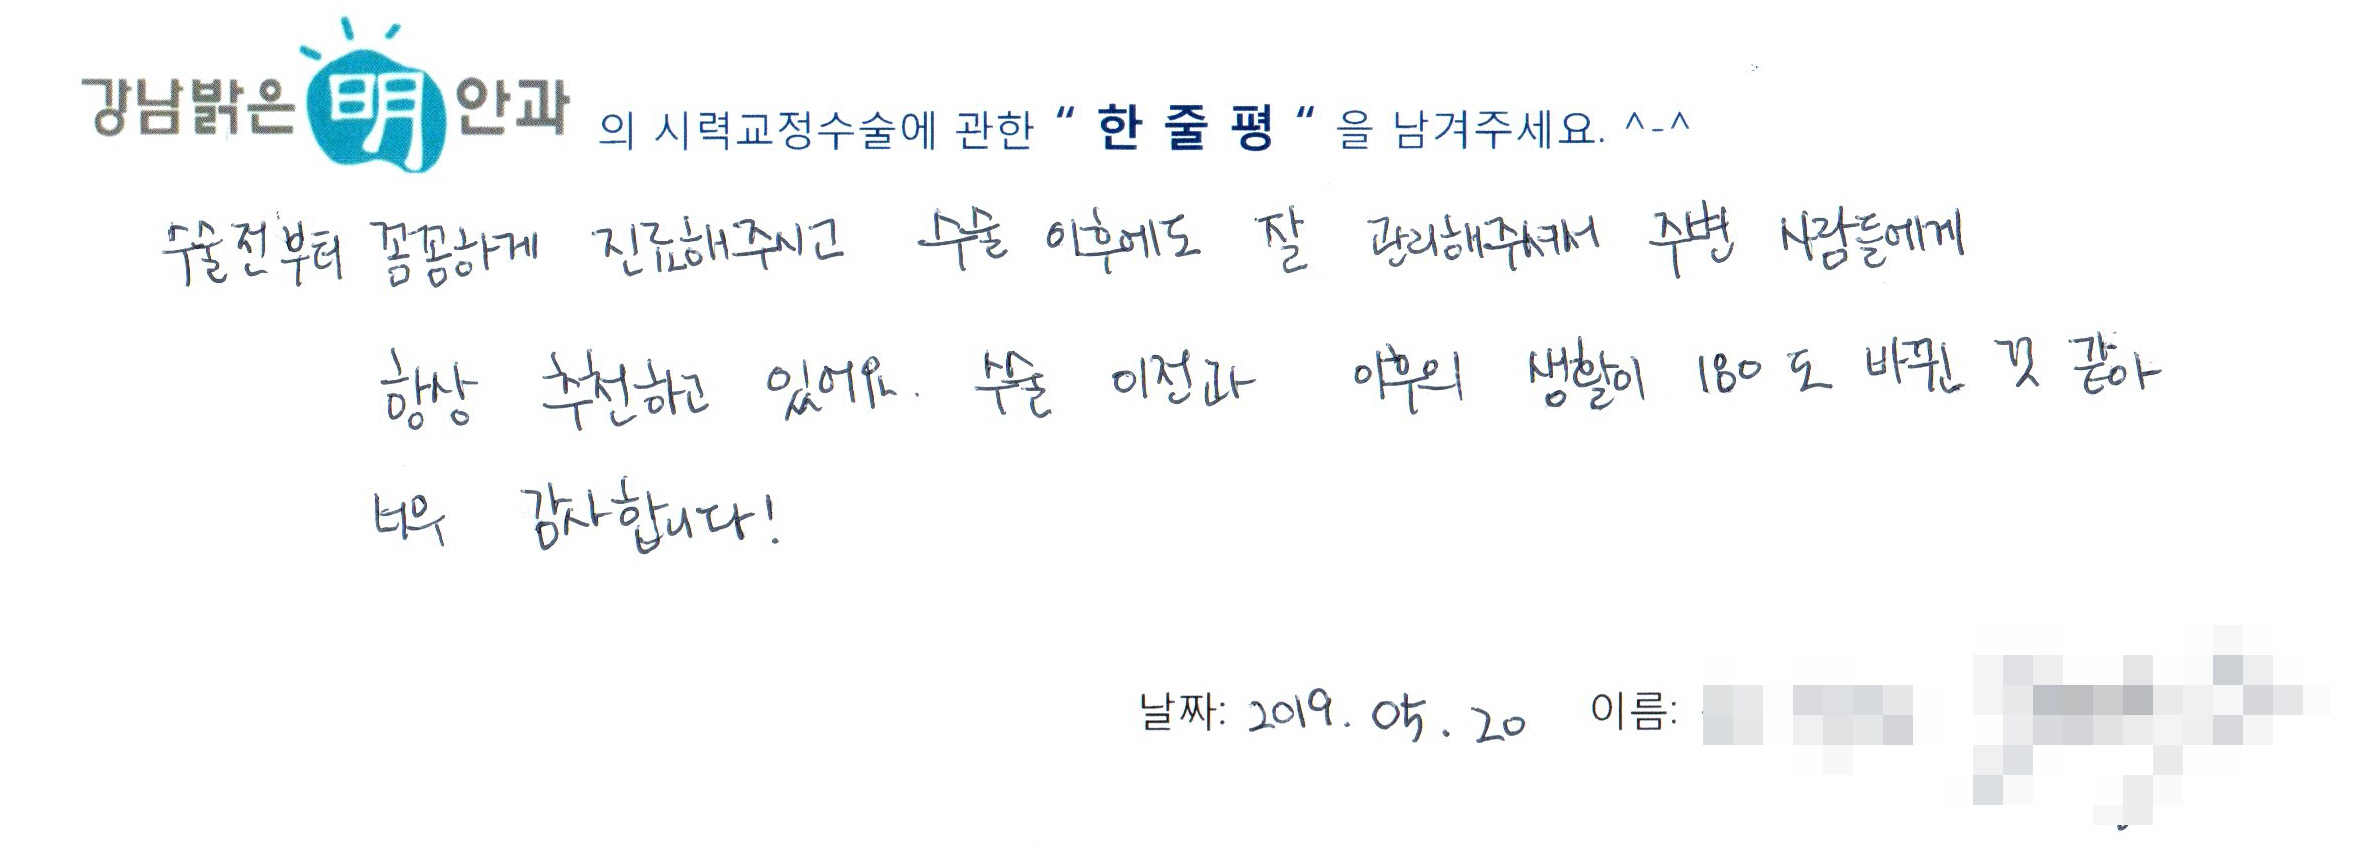 강남밝은明안과 의 시력교정수술에 관한 “ 한 줄 평 “ 을 남겨주세요. ^-^
수술전부터 꼼꼼하게 진료해주시고 수술 이후에도 잘 관리해주셔서 주변 사람들에게
항상 추천하고 있어요. 수술 이전과 이후의 생활이 180도 바뀐 것 같아
너무 감사합니다!
날짜: 2019. 05. 20 이름: